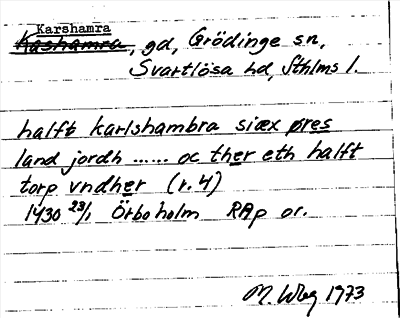 Karshamra
Kashamra, gd, Grödinge sn,
Svartlösa hd, Sthlms l.
halft karlshambra siæx øres
land jordh ...... oc ther eth halft
torp vndher (r. 4)
1430 23/1 Örboholm RAp or.
M. Wbg 1973